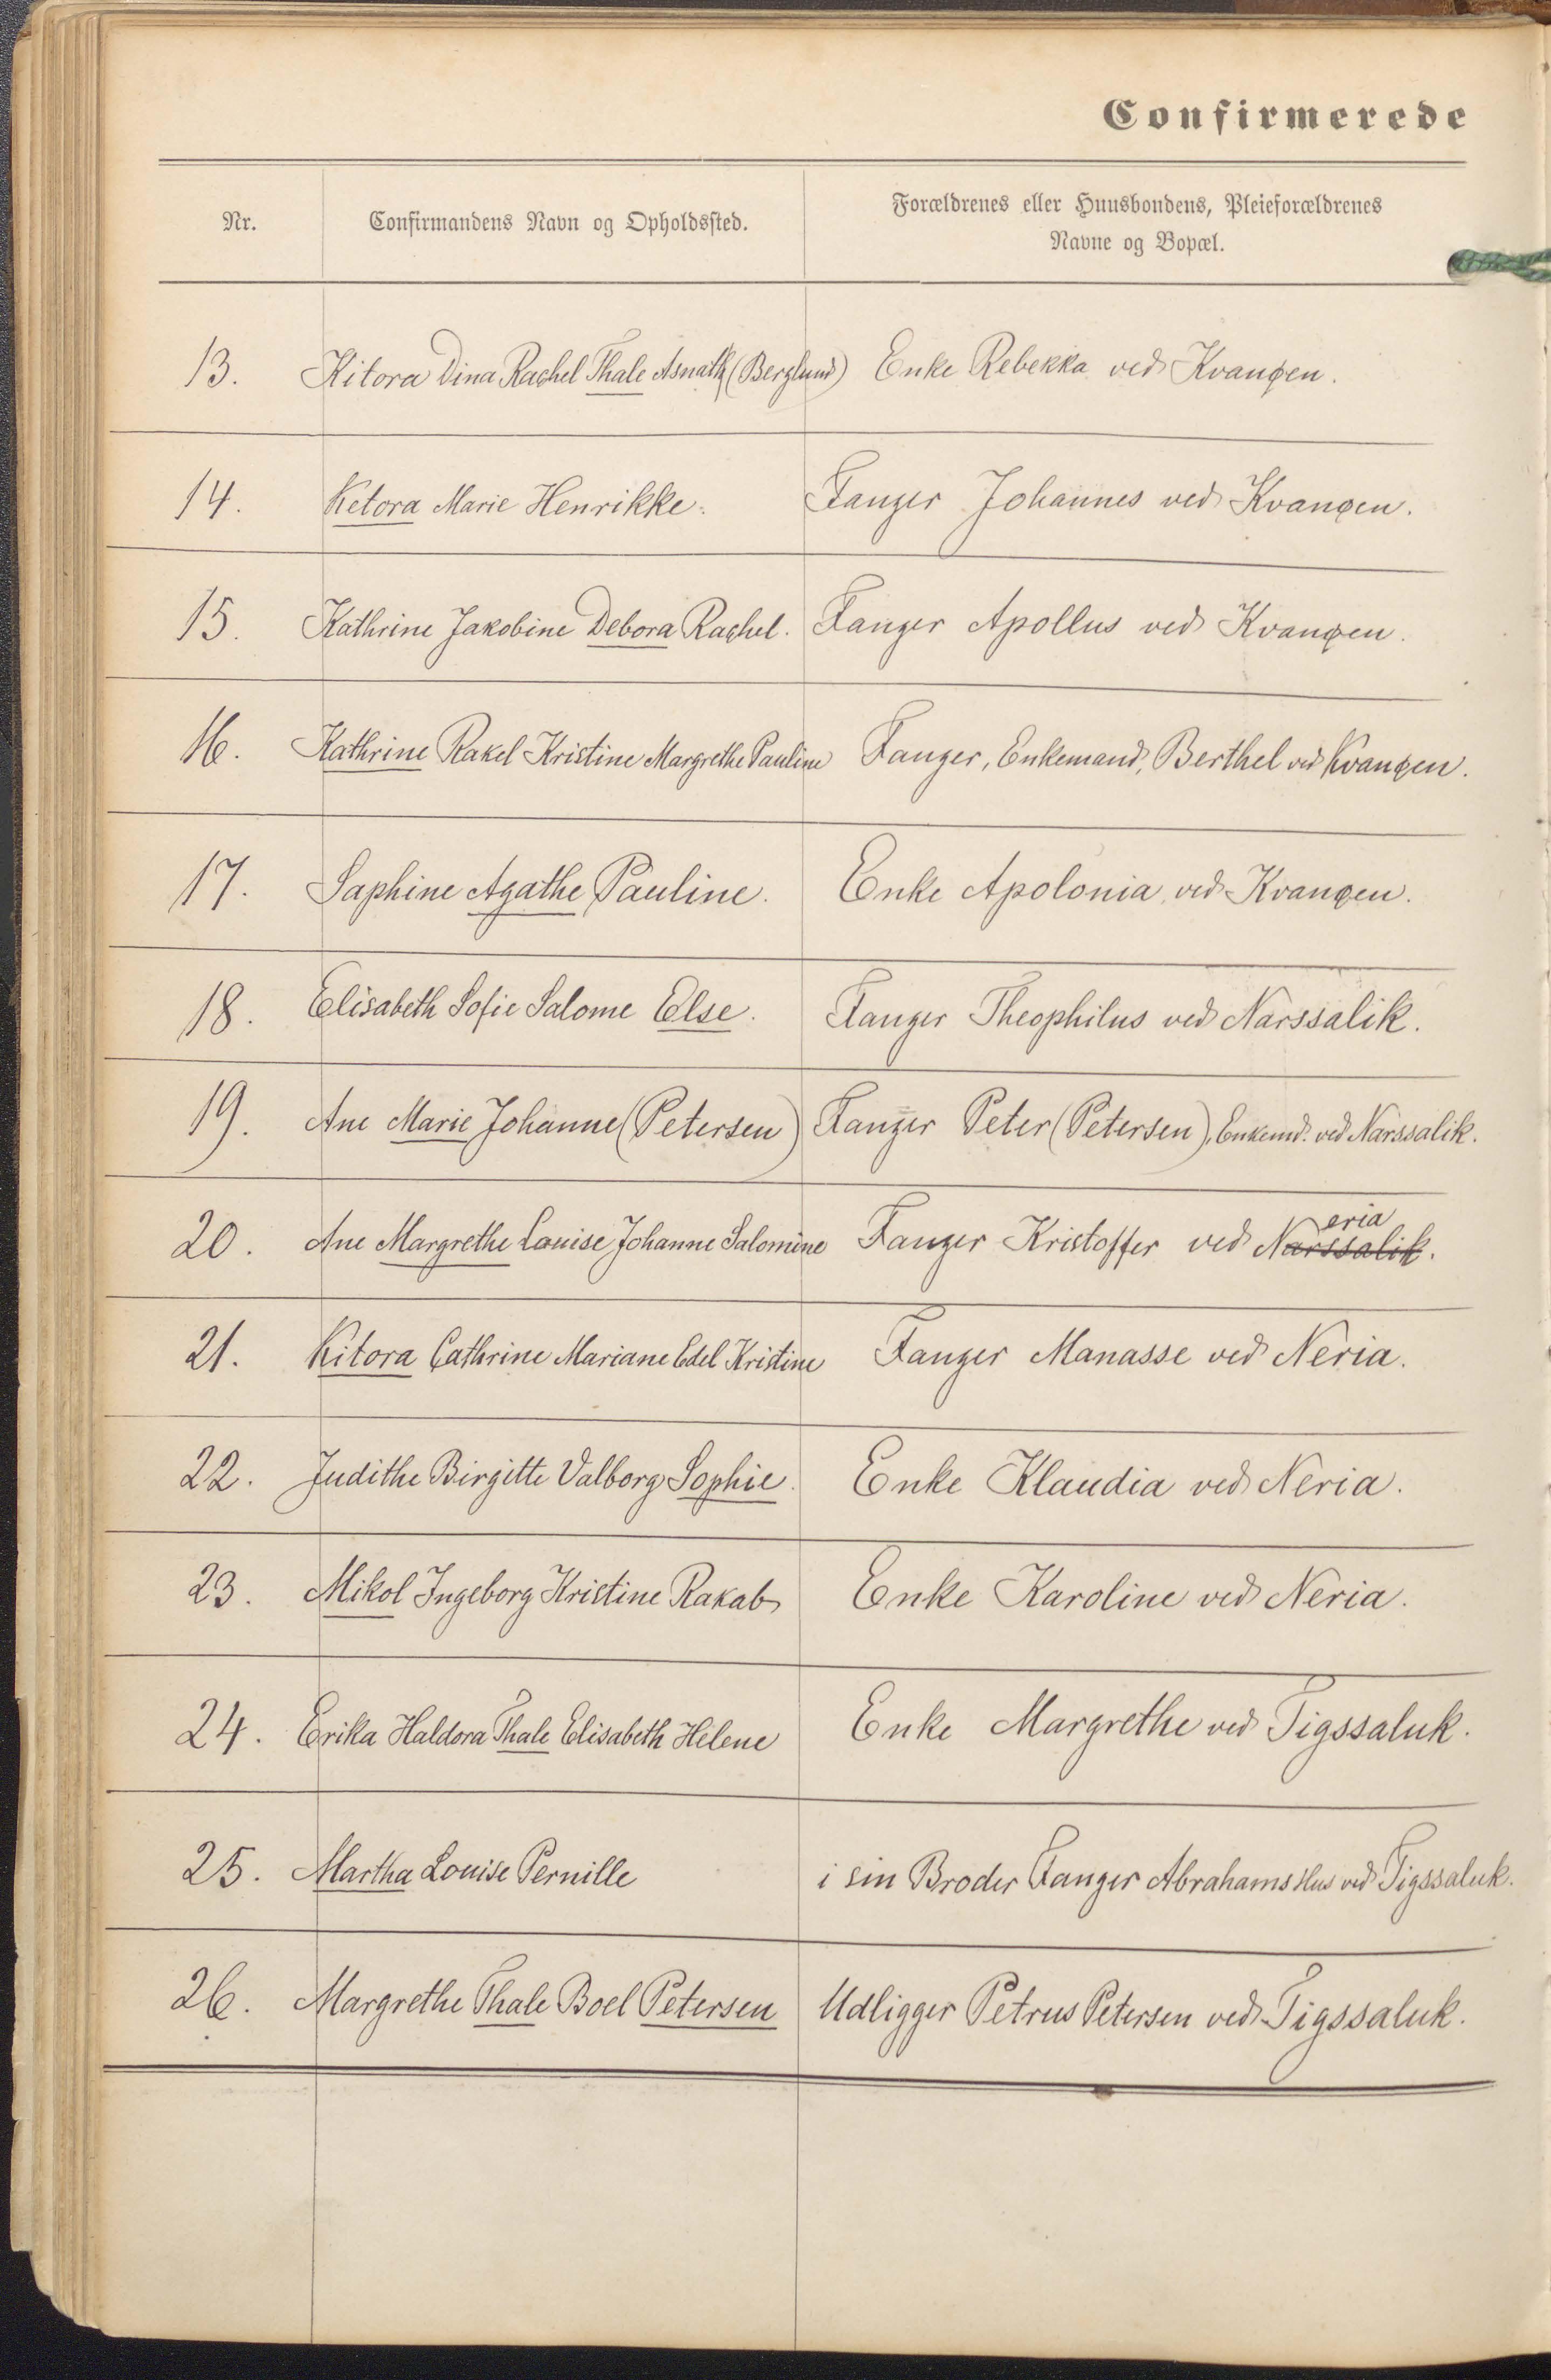 Confirmerede
Nr. Confirmandens Navn og Opholdssted. Forældrenes eller Huusbondens, Pleieforældrenes
Navne og Bopæl.
13. Kitora Dina Rachel Thale Asnath (Berglund) Enke Rebekka ved Kvanøen.
14. Ketora Marie Henrikke. Fanger Johannes ved Kvanøen.
15. Kathrine Jakobine Debora Rachel. Fanger Apollus ved Kvanøen.
16. Kathrine Rakel Kristine Margrethe Pauline Fanger, Enkemand, Berthel ved Kvanøen.
17. Saphine Agathe Pauline. Enke Apolonia ved Kvanøen.
18. Elisabeth Sofie Salome Else. Fanger Theophilus ved Narssalik.
19. Ane Marie Johanne (Petersen) Fanger Peter (Petersen), Enkemd. ved Narssalik.
eria
20. Ane Margrethe Louise Johanne Salomine Fanger Kristoffer ved Narssalik.
21. Kitora Cathrine Mariane Edel Kristine Fanger Manasse ved Neria.
22. Judithe Birgitte Valborg Sophie. Enke Klaudia ved Neria.
23. Mikol Ingeborg Kristine Rakab Enke Karoline ved Neria.
24. Erika Haldora Thale Elisabeth Helene Enke Margrethe ved Tigssaluk.
25. Martha Louise Pernille i sin Broder Fanger Abrahams Hus ved Tigssaluk.
26. Margrethe Thale Boel Petersen Udligger Petrus Petersen ved Tigssaluk.